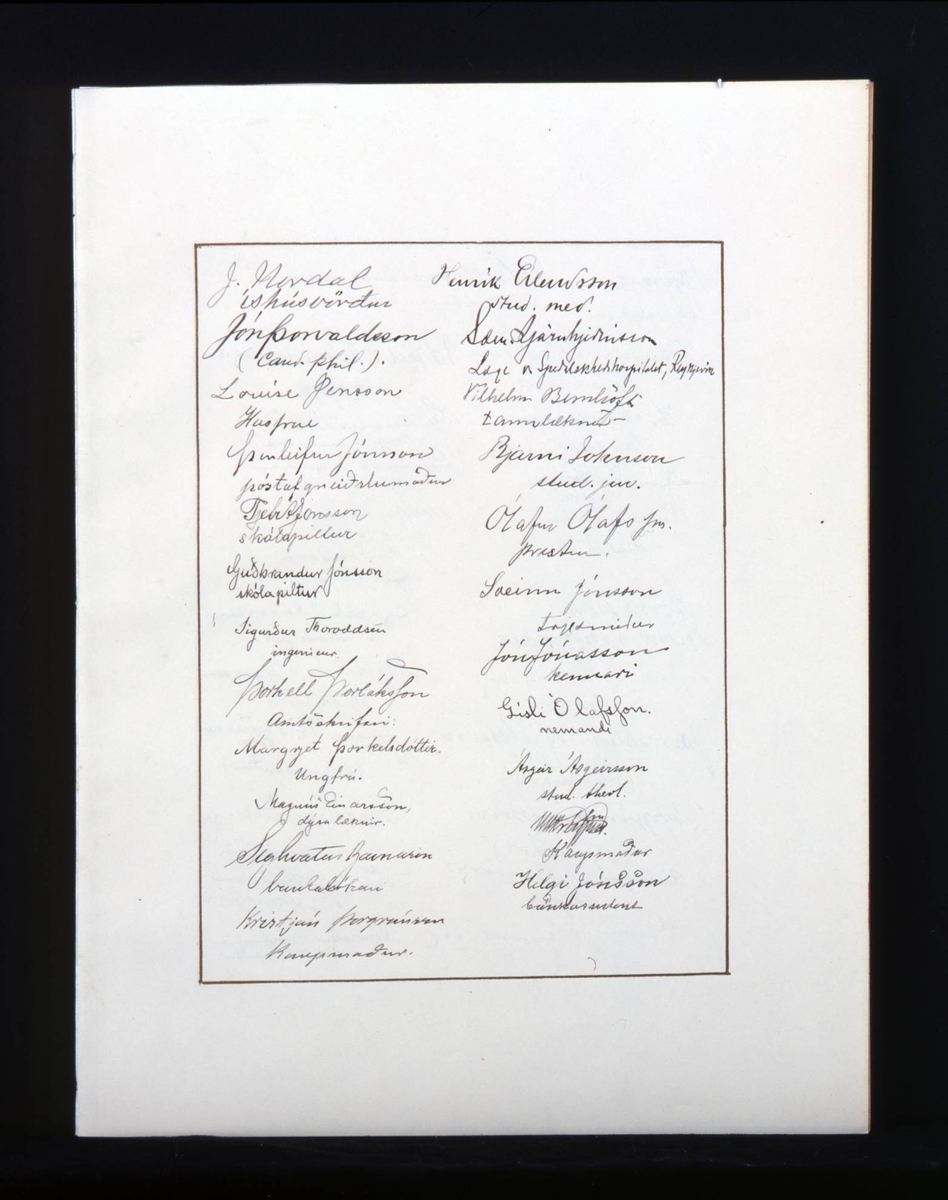 J. Nordal
íshúsvörður
Jón Þorvaldsson
(Cand. phil.).
Louise Jensson
Husfrue
Þorleifur Jónsson
póstafgreiðslumaður
Jónsson
skólapiltur
Guðbrandur Jónsson
skólapiltur
Sigurður Thoroddsen
ingenieur.
Þorkell Þorláksson
Amtsskrifari.
Margrjet Þorkelsdóttir.
Ungfrú.
Magnús Einarsson,
dýralæknir.
Sighvatur Bjarnason
bankabókari
Kristján Þorgrímsson
Kaupmaður.
Henrik Erlendsson
stud. med.
Sæm. Bjarnhjeðinsson
Læge v. Spedalskhedshospitalet, Reykjavik
Vilhelm Bernhöft
tannlæknir
Bjarni Johnson
stud. jur.
Ólafur Ólafsson.
prestur.
Sveinn Jónsson
trjesmiður
Jón Jónasson
kennari
Gísli Ólafsson.
nemandi
Ásgeir Ásgeirsson
stud. theol.
Kaupmaður
Helgi Jónsson
bankaassistent